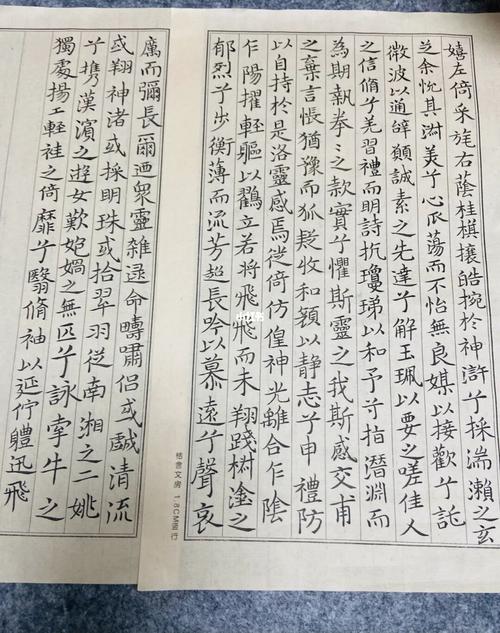 嬉左倚采旄右蔭桂旗攘皓捥於神滸兮採湍瀨之玄
芝余悅其淑美兮心振蕩而不怡無良媒以接歡兮託
微波以通辭願誠素之先達兮解玉珮以要之嗟佳人
之信脩兮羌習禮而明詩抗瓊珶以和予兮指潛淵而
為期執拳〻之款實兮懼斯靈之我斯感交甫
之棄言悵猶豫而狐疑收和顏以靜志兮申禮防
以自持於是洛靈感焉徙倚仿偟神光離合乍陰
乍陽擢輕軀以鶴立若將飛飛而未翔踐椒塗之
郁烈兮步衡薄而流芳超長吟以慕遠兮聲哀
厲而彌長爾迺眾靈雜遝命疇嘯侶或戲清流
或翔神渚或採明珠或拾翠羽從南湘之二姚
兮攜漢濱之遊女歎匏媧之無匹兮詠牽牛之
獨處揚輕袿之倚靡兮翳脩袖以延佇體迅飛
文房 1.8CM
小红书